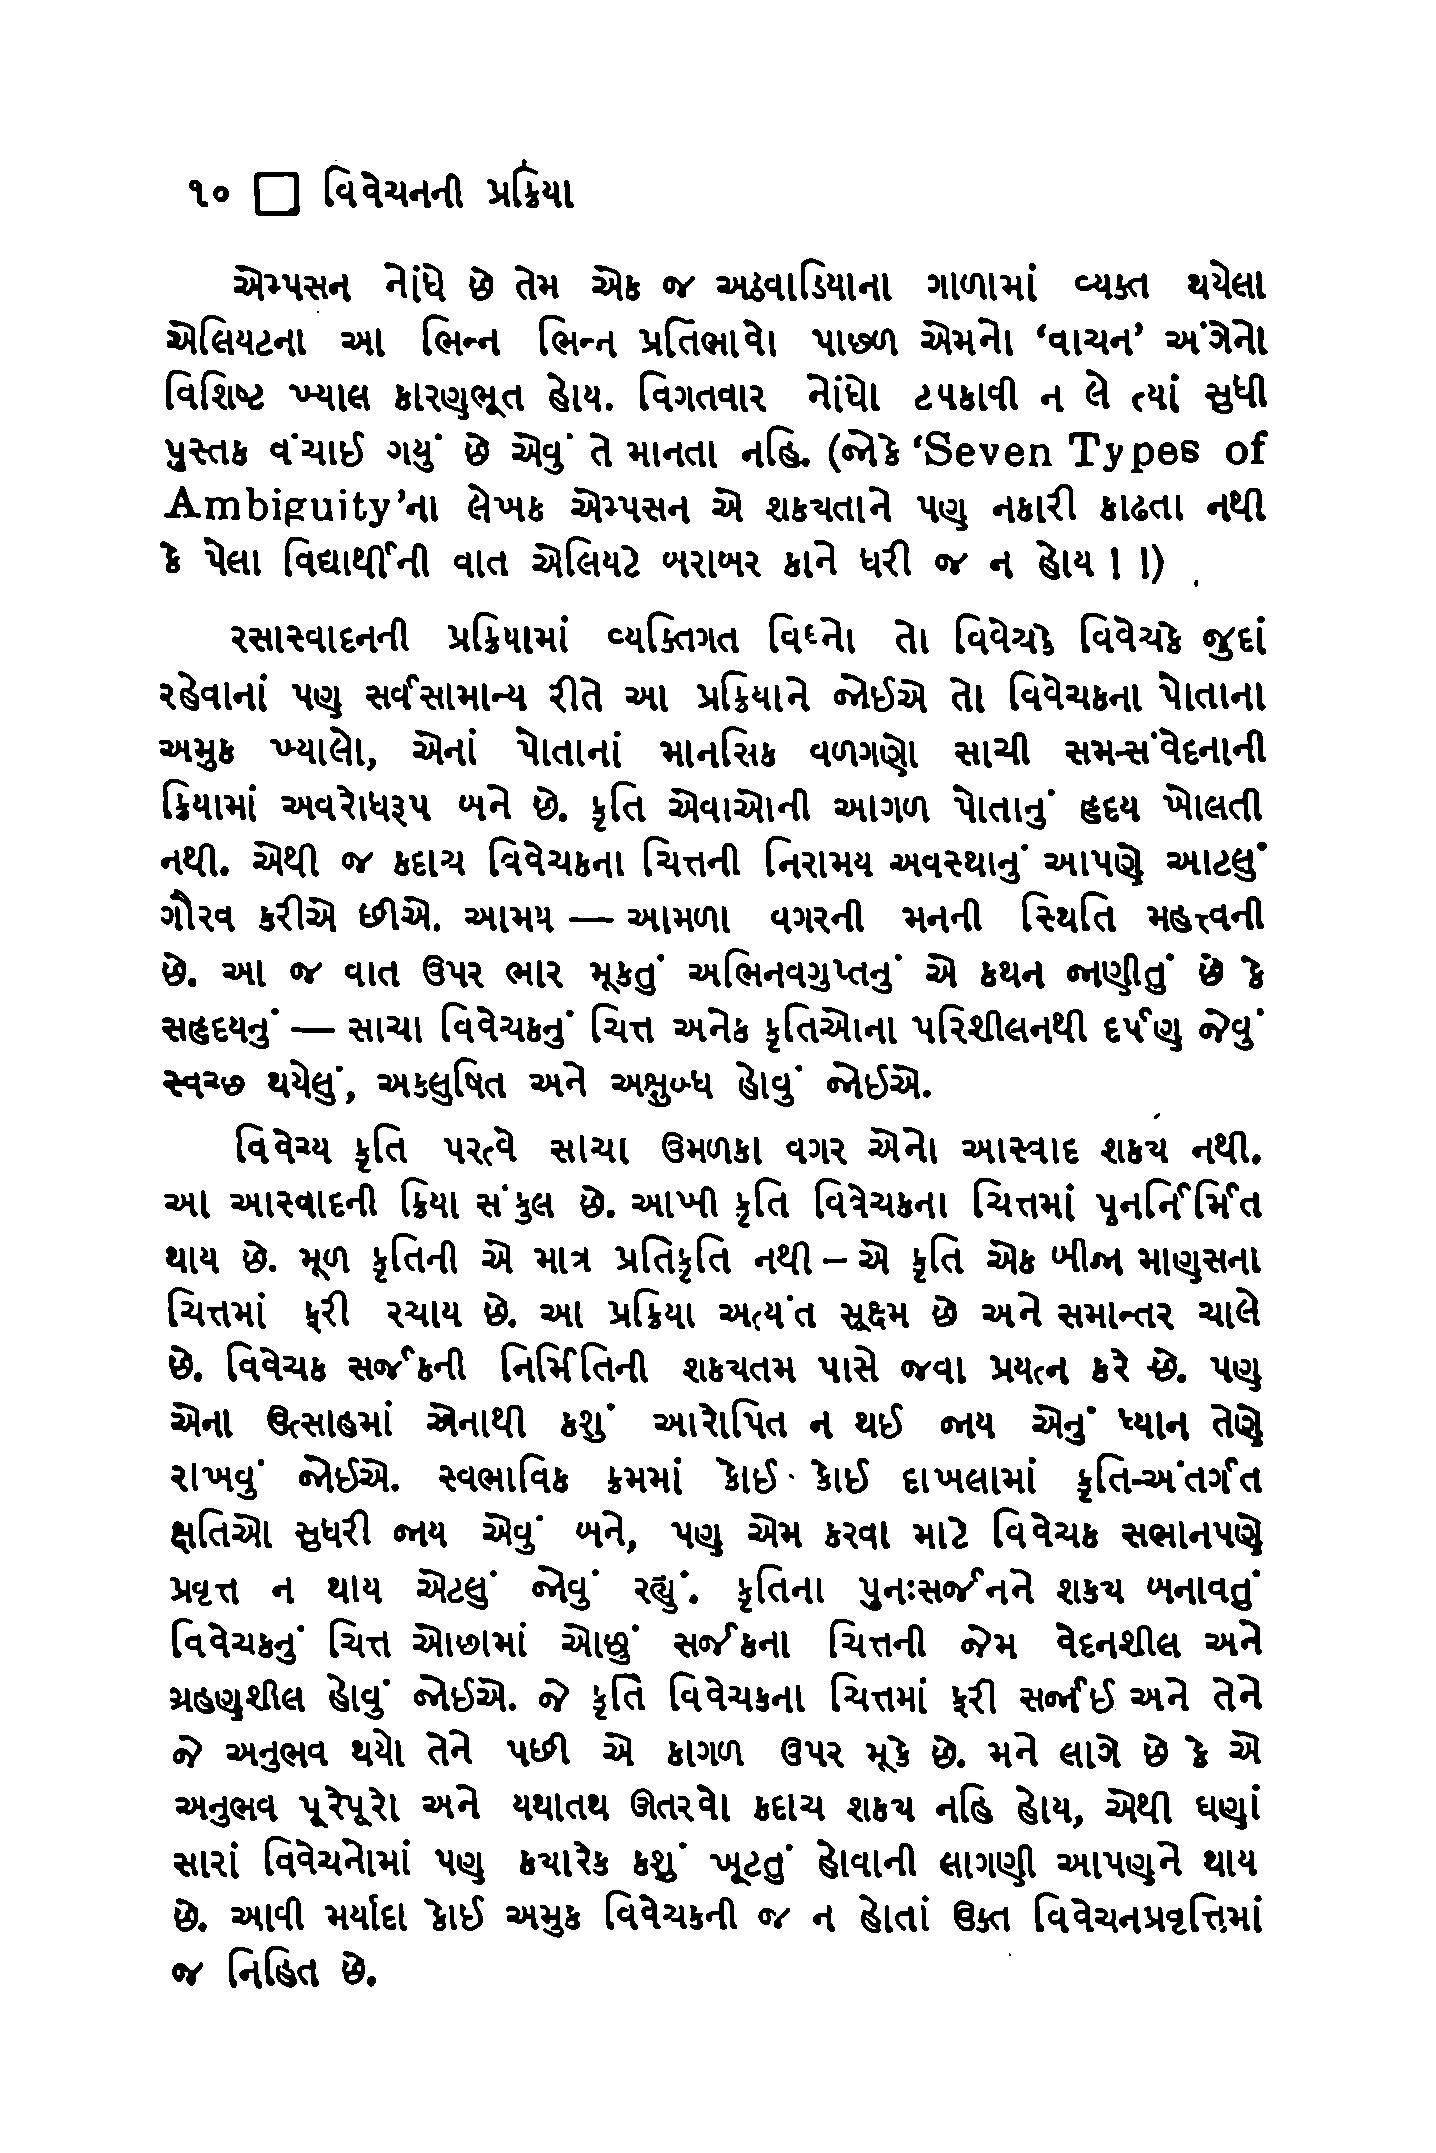 ૧૦ □ વિવેચનની પ્રક્રિયા
એમ્પસન નોંધે છે તેમ એક જ અઠવાડિયાના ગાળામાં વ્યક્ત થયેલા
એલિયટના આ ભિન્ન ભિન્ન પ્રતિભાવો પાછળ એમનો ‘વાચન’ અંગેનો
વિશિષ્ટ ખ્યાલ કારણભૂત હોય. વિગતવાર નોંધો ટપકાવી ન લે ત્યાં સુધી
પુસ્તક વંચાઈ ગયું છે એવું તે માનતા નહિ. (જોકે ‘Seven Types of
Ambiguity’ના લેખક એમ્પસન એ શક્યતાને પણ નકારી કાઢતા નથી
કે પેલા વિદ્યાર્થીની વાત એલિયટે બરાબર કાને ધરી જ ન હોય ! !)
રસાસ્વાદનની પ્રક્રિયામાં વ્યક્તિગત વિઘ્નો તો વિવેચકે વિવેચકે જુદાં
રહેવાનાં પણ સર્વસામાન્ય રીતે આ પ્રક્રિયાને જોઈએ તો વિવેચકના પોતાના
અમુક ખ્યાલો, એનાં પોતાનાં માનસિક વળગણો સાચી સમન્સંવેદનાની
ક્રિયામાં અવરોધરૂપ બને છે. કૃતિ એવાઓની આગળ પોતાનું હૃદય ખોલતી
નથી. એથી જ કદાચ વિવેચકના ચિત્તની નિરામય અવસ્થાનું આપણે આટલું
ગૌરવ કરીએ છીએ. આમય — આમળા વગરની મનની સ્થિતિ મહત્ત્વની
છે. આ જ વાત ઉપર ભાર મૂકતું અભિનવગુપ્તનું એ કથન જાણીતું છે કે
સહૃદયનું — સાચા વિવેચકનું ચિત્ત અનેક કૃતિઓના પરિશીલનથી દર્પણ જેવું
સ્વચ્છ થયેલું, અકલુષિત અને અક્ષુબ્ધ હોવું જોઈએ.
વિવેચ્ય કૃતિ પરત્વે સાચા ઉમળકા વગર એનો આસ્વાદ શક્ય નથી.
આ આસ્વાદની ક્રિયા સંકુલ છે. આખી કૃતિ વિવેચકના ચિત્તમાં પુનર્નિર્મિત
થાય છે. મૂળ કૃતિની એ માત્ર પ્રતિકૃતિ નથી – એ કૃતિ એક બીજા માણસના
ચિત્તમાં ફરી રચાય છે. આ પ્રક્રિયા અત્યંત સૂક્ષ્મ છે અને સમાન્તર ચાલે
છે. વિવેચક સર્જકની નિર્મિતિની શક્યતમ પાસે જવા પ્રયત્ન કરે છે. પણ
એના ઉત્સાહમાં એનાથી કશું આરોપિત ન થઈ જાય એનું ધ્યાન તેણે
રાખવું જોઈએ. સ્વભાવિક ક્રમમાં કોઈ કોઈ દાખલામાં કૃતિ-અંતર્ગત
ક્ષતિઓ સુધરી જાય એવું બને, પણ એમ કરવા માટે વિવેચક સભાનપણે
પ્રવૃત્ત ન થાય એટલું જોવું રહ્યું. કૃતિના પુનઃસર્જનને શક્ય બનાવતું
વિવેચકનું ચિત્ત ઓછામાં ઓછું સર્જકના ચિત્તની જેમ વેદનશીલ અને
ગ્રહણશીલ હોવું જોઈએ. જે કૃતિ વિવેચકના ચિત્તમાં ફરી સર્જાઈ અને તેને
જે અનુભવ થયો તેને પછી એ કાગળ ઉપર મૂકે છે. મને લાગે છે કે એ
અનુભવ પૂરેપૂરો અને યથાતથ ઊતરવો કદાચ શક્ય નહિ હોય, એથી ઘણાં
સારાં વિવેચનોમાં પણ ક્યારેક કશું ખૂટતું હોવાની લાગણી આપણને થાય
છે. આવી મર્યાદા કોઈ અમુક વિવેચકની જ ન હોતાં ઉક્ત વિવેચનપ્રવૃત્તિમાં
જ નિહિત છે.